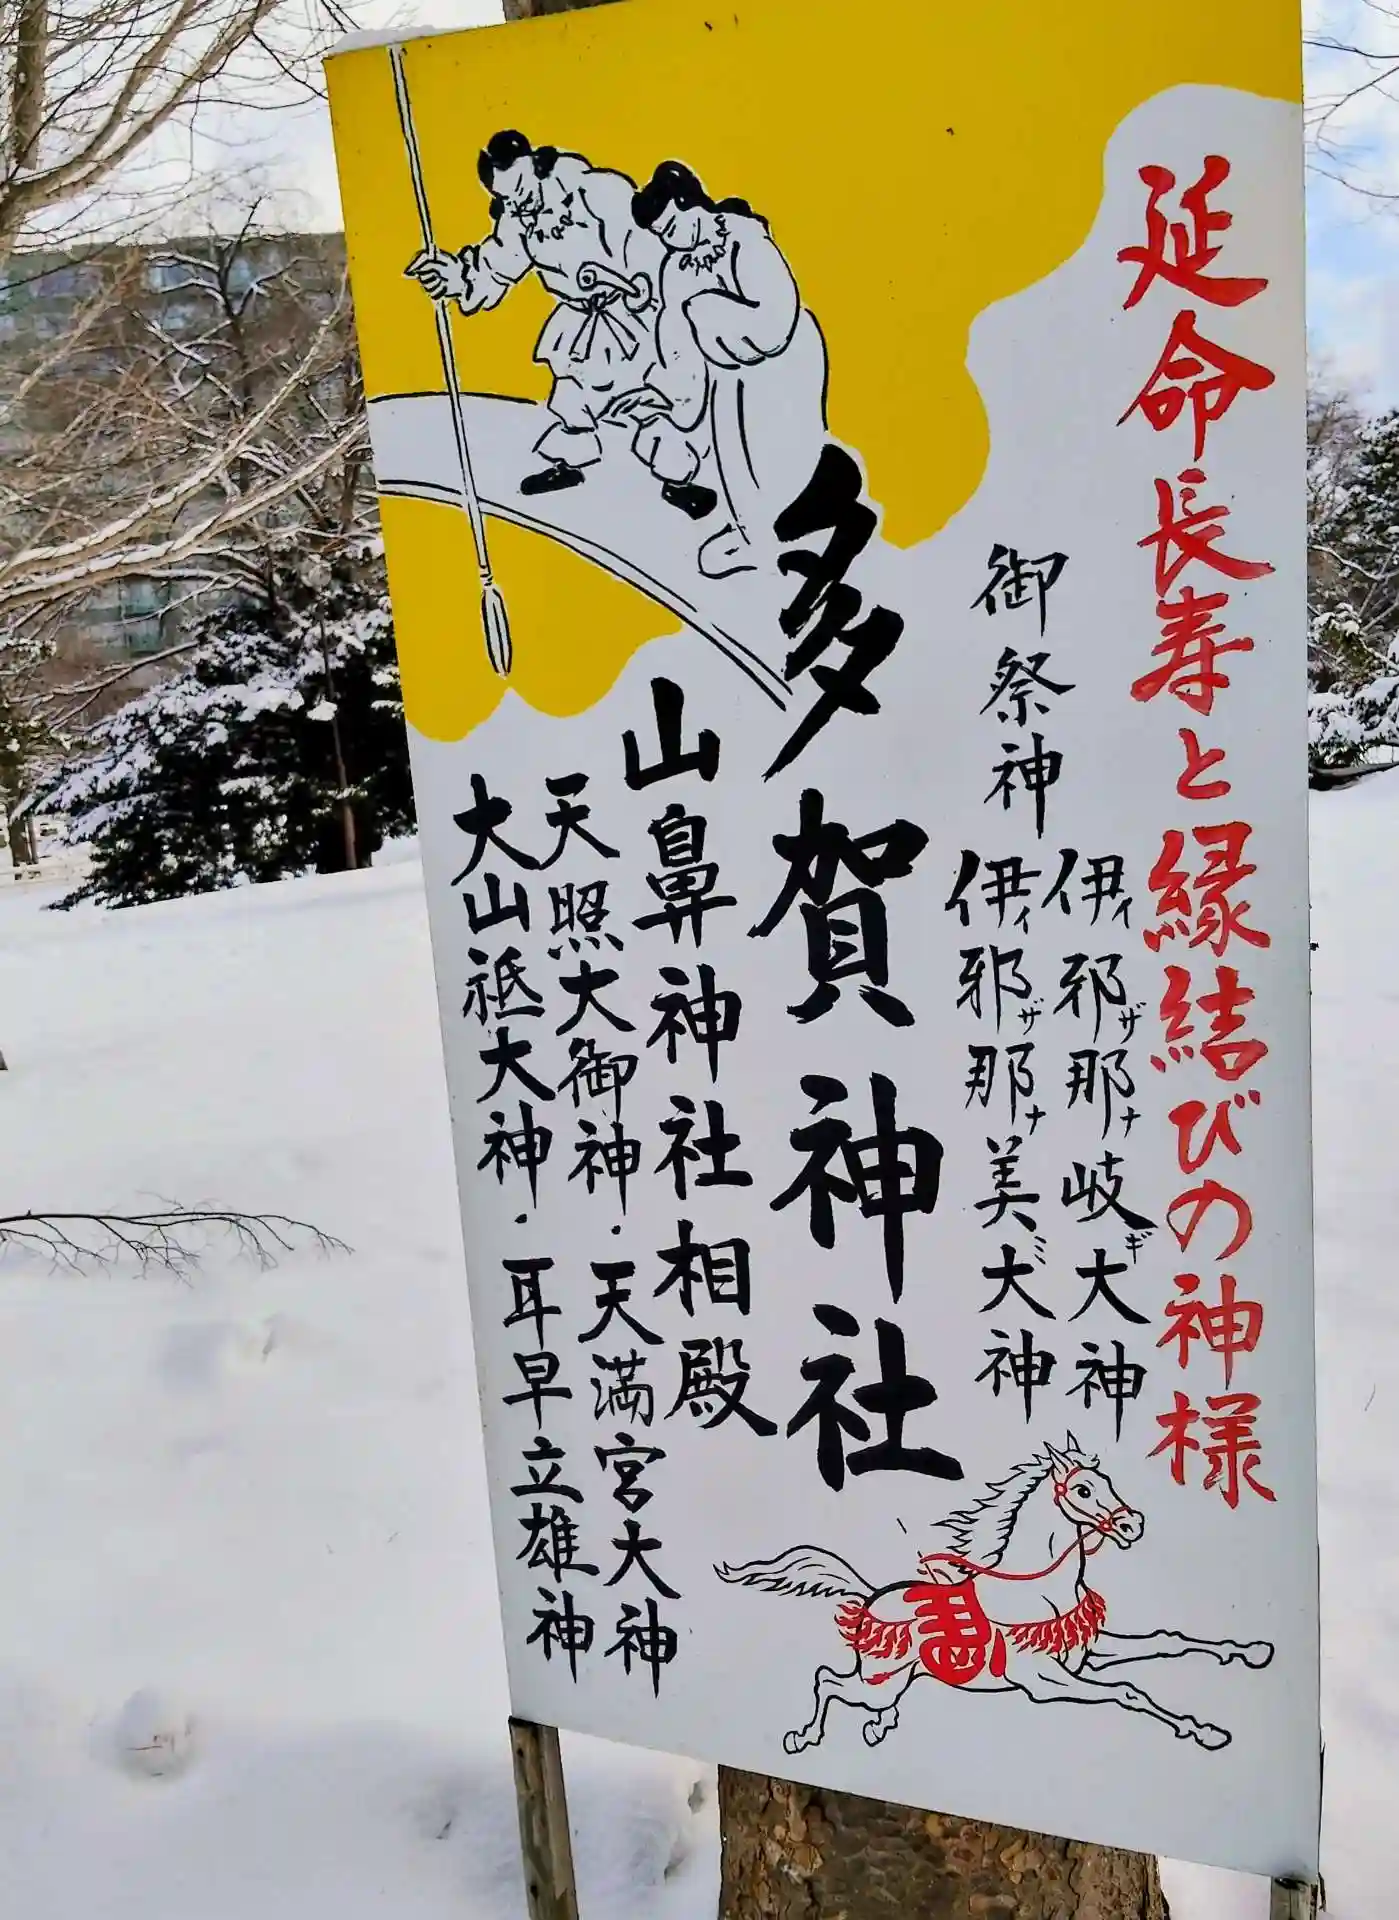 延命長寿と縁結びの神様
御祭神
伊邪那岐大神
イザナギ
伊邪那美大神
イザナミ
多賀神社
山鼻神社相殿
天照大御神・天満宮大神
大山祗大神・耳早立雄神